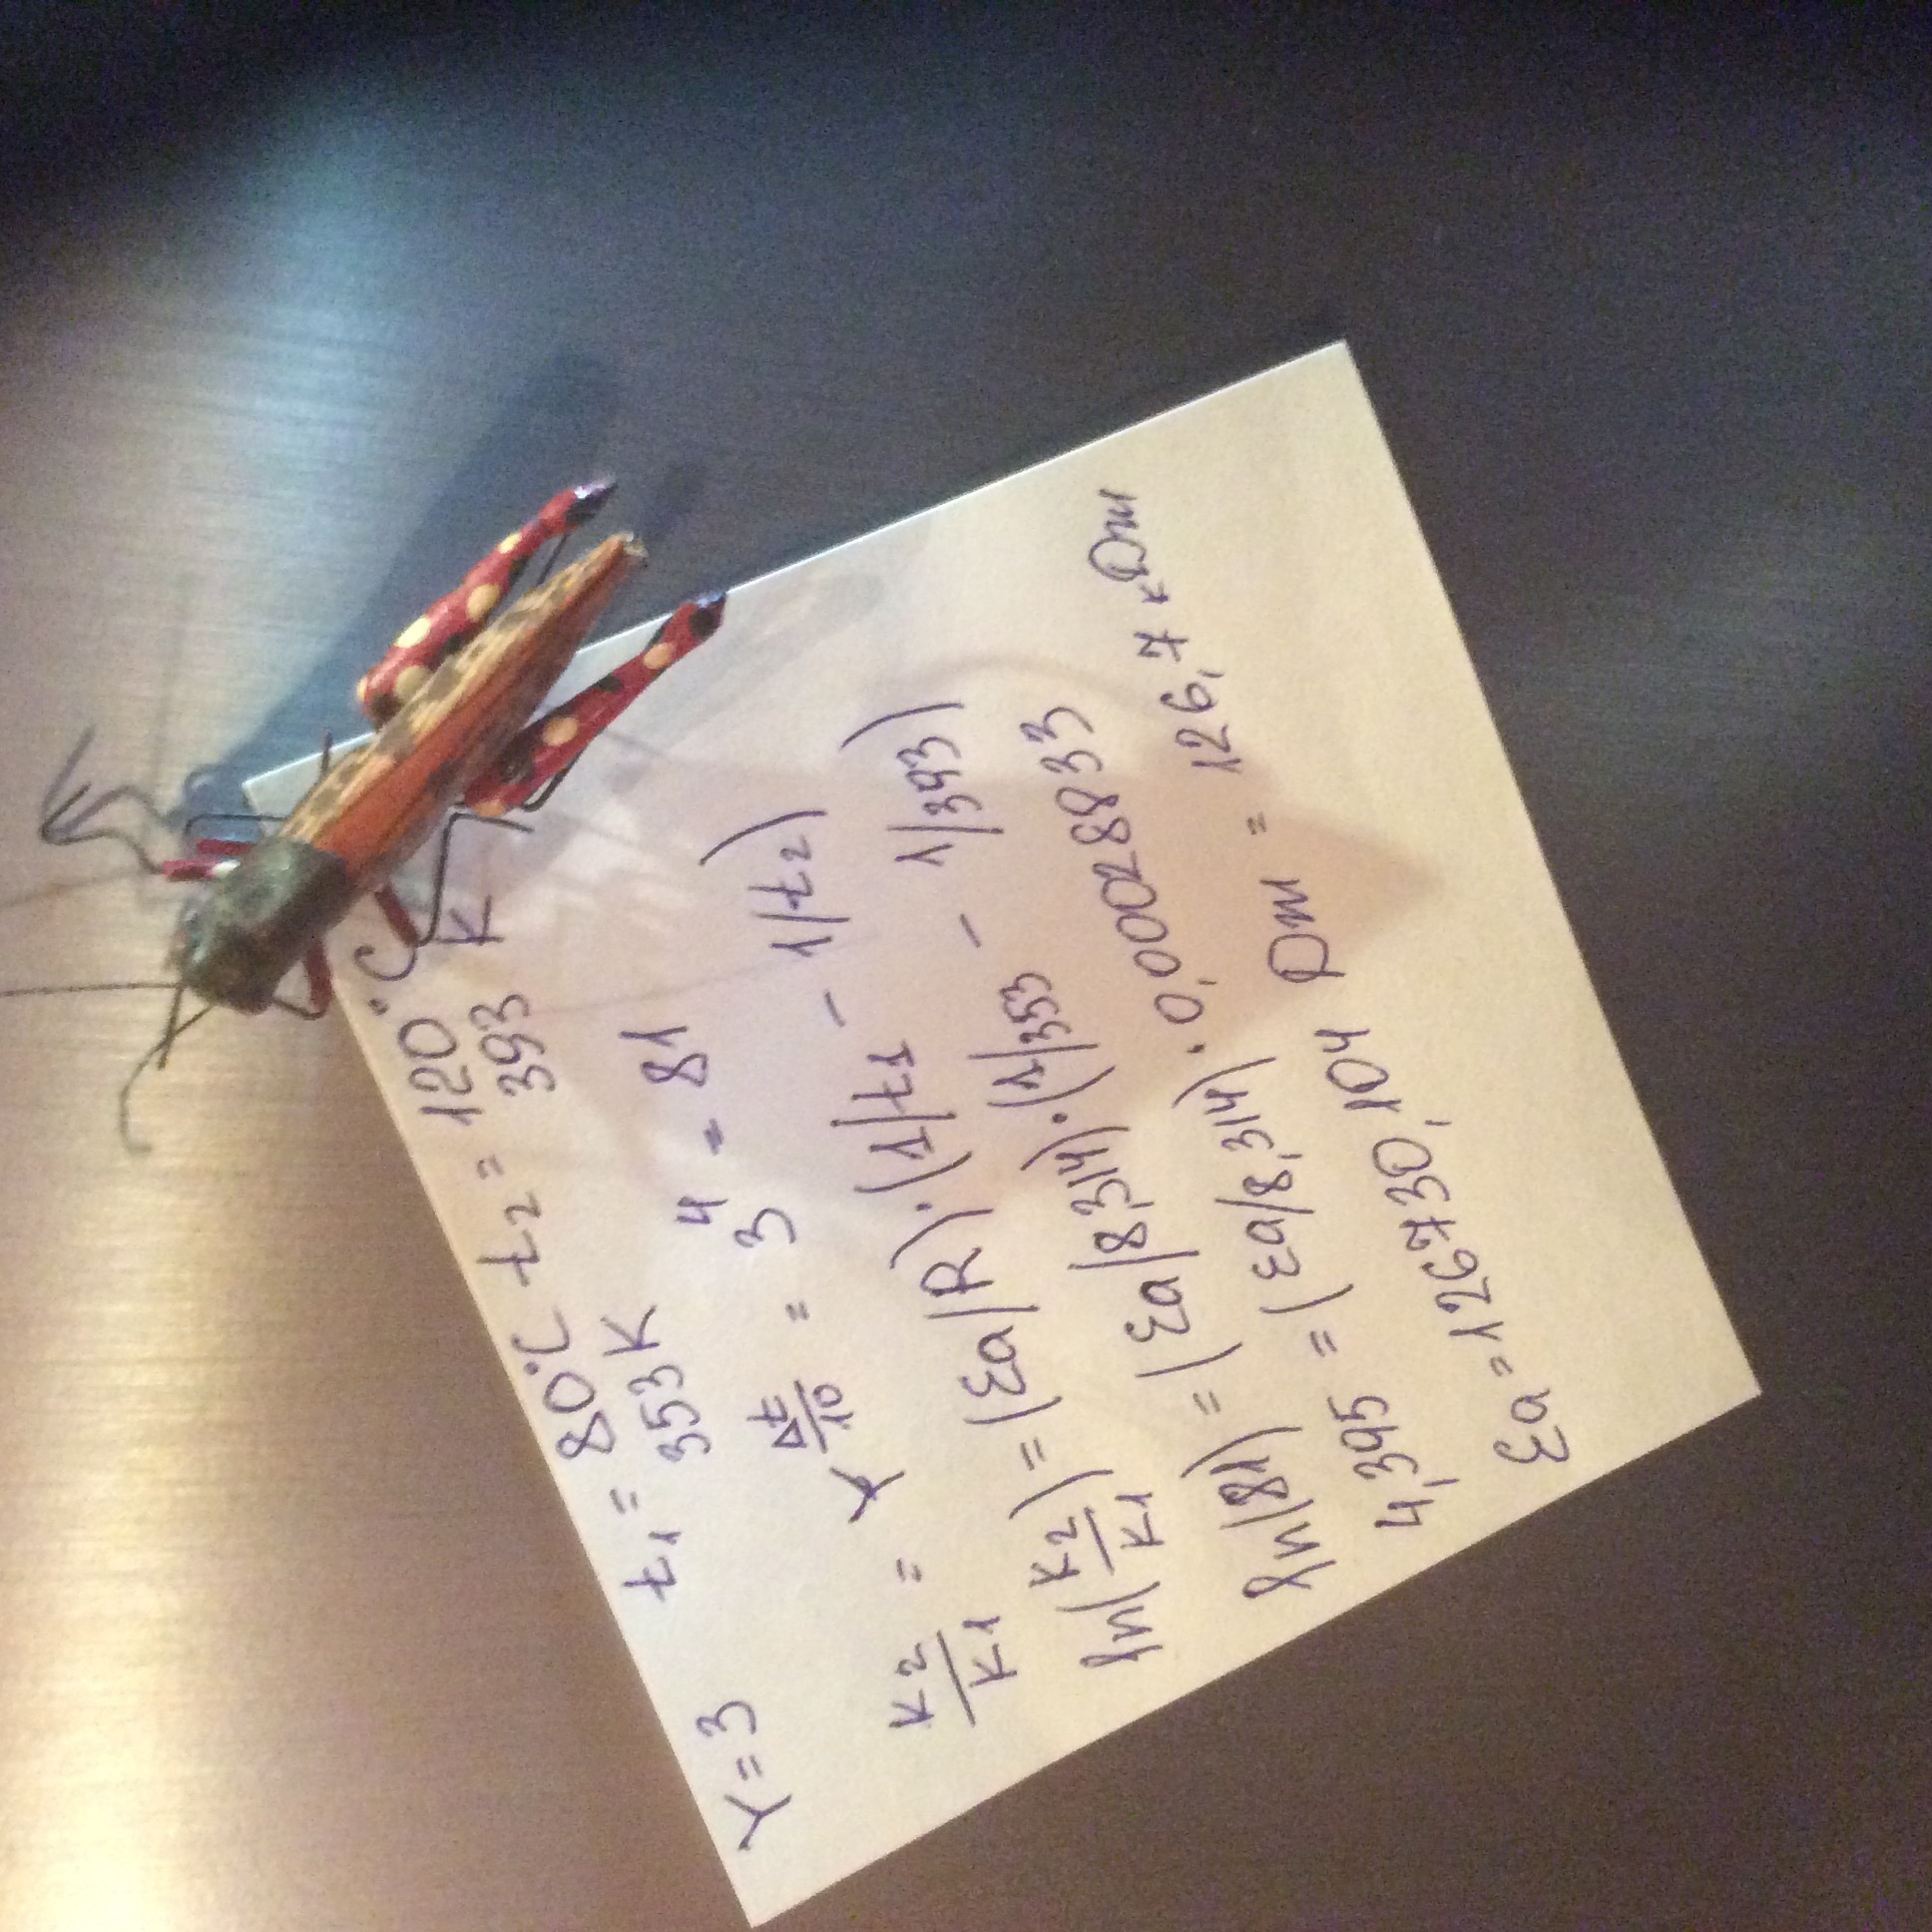 γ=3 t₁ = 80°C t₂ = 120°C
t₁ = 353 K 393 K
K₂/K₁ = γ^(Δt/10) = 3⁴ = 81
ln(K₂/K₁) = (Ea/R)·(1/t₁ - 1/t₂)
ln(81) = (Ea/8,314)·(1/353 - 1/393)
4,395 = (Ea/8,314)·0,00028833
Ea = 126730,104 Дж = 126,7 кДж